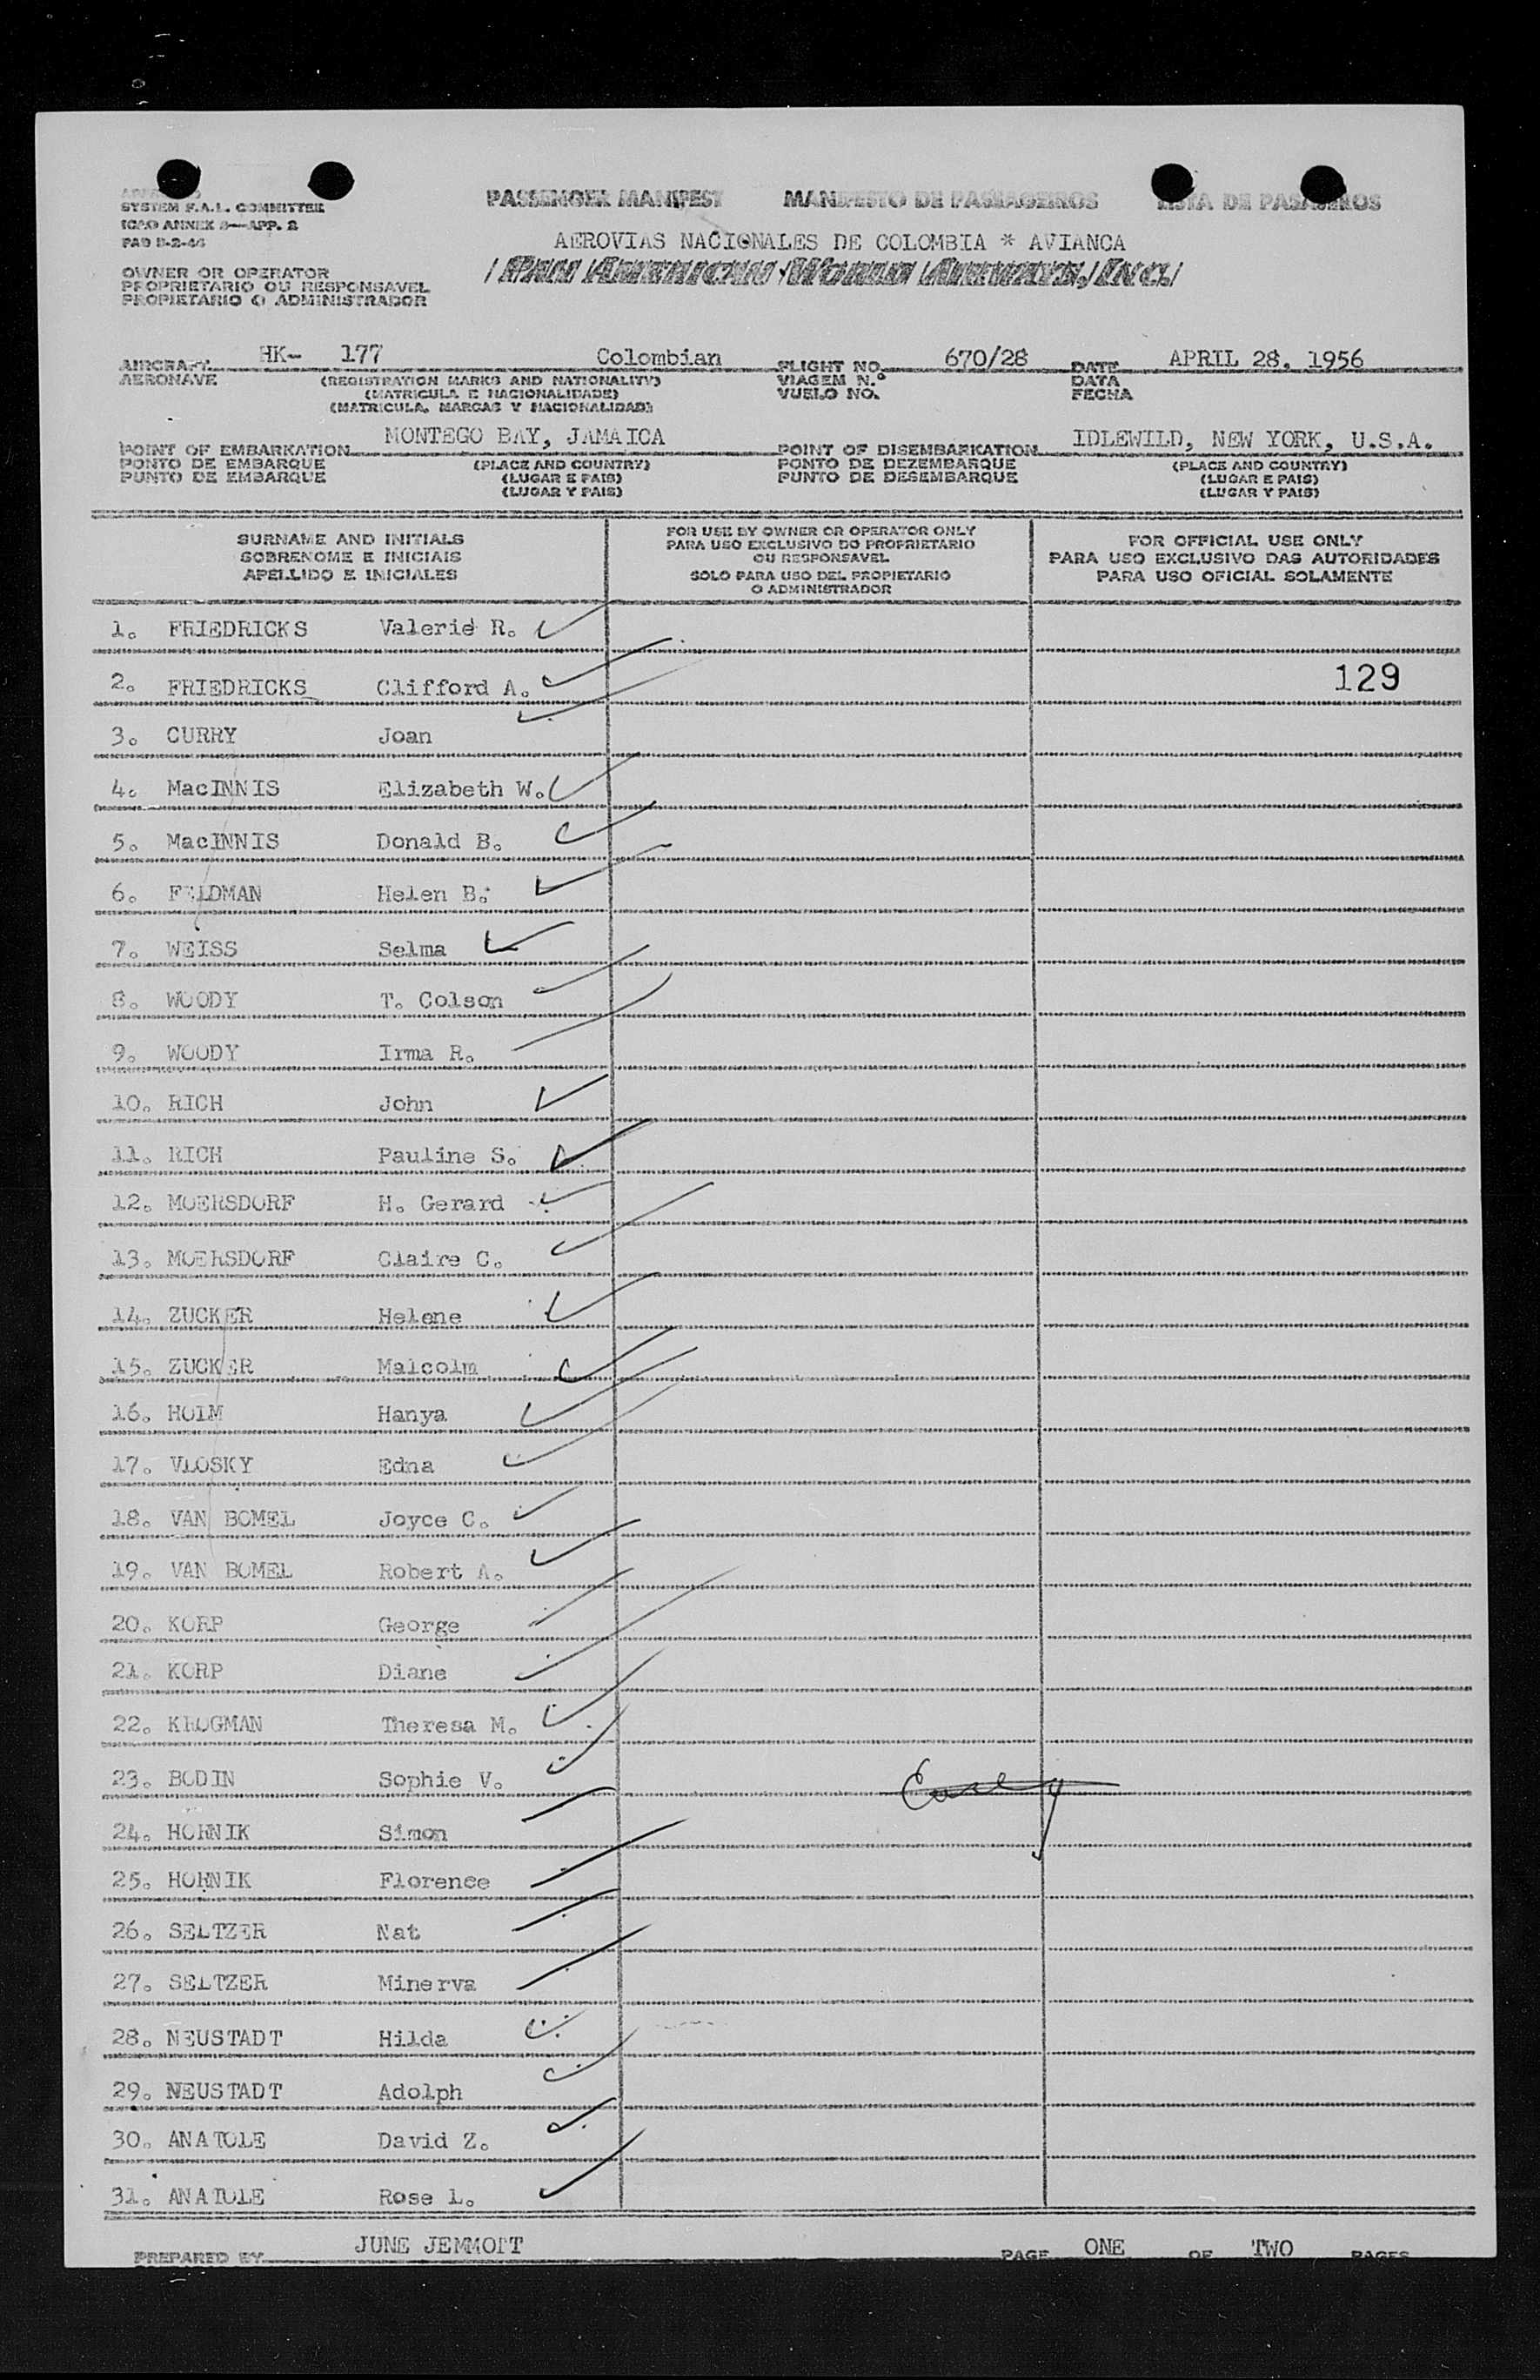 SYSTEM F.A.L. COMMITTEE
ICAO ANNEX 9—APP. 2
PAD D-2-46
PASSENGER MANIFEST MANIFESTO DE PASSAGEIROS LISTA DE PASAJEROS
AEROVIAS NACIONALES DE COLOMBIA * AVIANCA
Pan American World Airways, Inc.
OWNER OR OPERATOR
PROPRIETARIO OU RESPONSAVEL
PROPIETARIO O ADMINISTRADOR
AIRCRAFT HK- 177 Colombian FLIGHT NO. 670/28 DATE APRIL 28, 1956
AERONAVE (REGISTRATION MARKS AND NATIONALITY) VIAGEM N.º DATA
(MATRICULA E NACIONALIDADE) VUELO NO. FECHA
(MATRICULA, MARCAS Y NACIONALIDAD)
POINT OF EMBARKATION MONTEGO BAY, JAMAICA POINT OF DISEMBARKATION IDLEWILD, NEW YORK, U.S.A.
PONTO DE EMBARQUE (PLACE AND COUNTRY) PONTO DE DEZEMBARQUE (PLACE AND COUNTRY)
PUNTO DE EMBARQUE (LUGAR E PAIS) PUNTO DE DESEMBARQUE (LUGAR E PAIS)
(LUGAR Y PAIS) (LUGAR Y PAIS)
SURNAME AND INITIALS
SOBRENOME E INICIAIS
APELLIDO E INICIALES
FOR USE BY OWNER OR OPERATOR ONLY
PARA USO EXCLUSIVO DO PROPRIETARIO
OU RESPONSAVEL
SOLO PARA USO DEL PROPIETARIO
O ADMINISTRADOR
FOR OFFICIAL USE ONLY
PARA USO EXCLUSIVO DAS AUTORIDADES
PARA USO OFICIAL SOLAMENTE
1. FRIEDRICKS Valerie R.
2. FRIEDRICKS Clifford A. 129
3. CURRY Joan
4. MacINNIS Elizabeth W.
5. MacINNIS Donald B.
6. FELDMAN Helen B.
7. WEISS Selma
8. WOODY T. Colson
9. WOODY Irma R.
10. RICH John
11. RICH Pauline S.
12. MOERSDORF H. Gerard
13. MOERSDORF Claire C.
14. ZUCKER Helene
15. ZUCKER Malcolm
16. HOLM Hanya
17. VLOSKY Edna
18. VAN BOMEL Joyce C.
19. VAN BOMEL Robert A.
20. KORP George
21. KORP Diane
22. KROGMAN Theresa M.
23. BODIN Sophie V.
24. HORNIK Simon
25. HORNIK Florence
26. SELTZER Nat
27. SELTZER Minerva
28. NEUSTADT Hilda
29. NEUSTADT Adolph
30. ANATOLE David Z.
31. ANATOLE Rose L.
PREPARED BY JUNE JEMMOTT PAGE ONE OF TWO PAGES